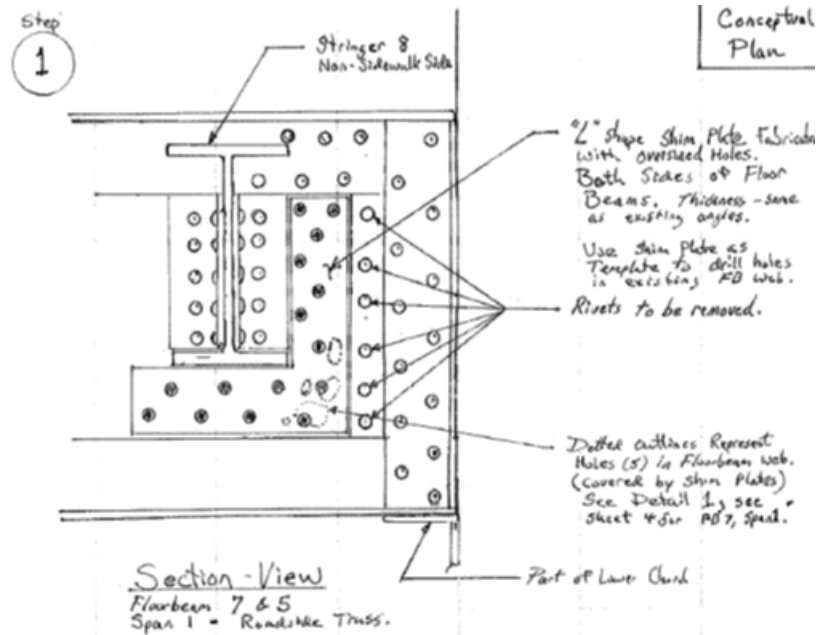 Step
1
Conceptual
Plan
Stringer 8
Non-Sidewalk Side
"L" shape Shim Plate Fabricated
with oversized Holes.
Both Sides of Floor
Beams. Thickness - same
as existing angles.
Use Shim Plate as
Template to drill holes
in existing FB Web.
Rivets to be removed.
Dotted outlines Represent
Holes (5) in Floorbeam Web.
(covered by Shim Plates)
See Detail 1, see
sheet 4 for FB 7, Span 1.
Part of Lower Chord
Section - View
Floorbeam 7 & 5
Span 1 - Roadside Truss.